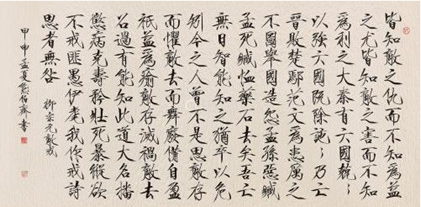 皆知敵之仇而不知為益
之尤皆知敵之害而不知
為利之大秦有六國兢兢
以強六國既除訑訑乃亡
晉敗楚鄢范文為患厲之
不圖舉國造怨孟孫惡臧
孟死臧恤藥石去矣吾亡
無日智能知之猶卒以危
矧今之人曾不是思敵存
而懼敵去而舞廢備自盈
祇益為瘉敵存滅禍敵去
召過有能知此道大名播
懲病克壽矜壯死暴縱欲
不戒匪愚伊耄我作戒詩
思者無咎 柳宗元敵戒
甲申孟夏熊伯齊書